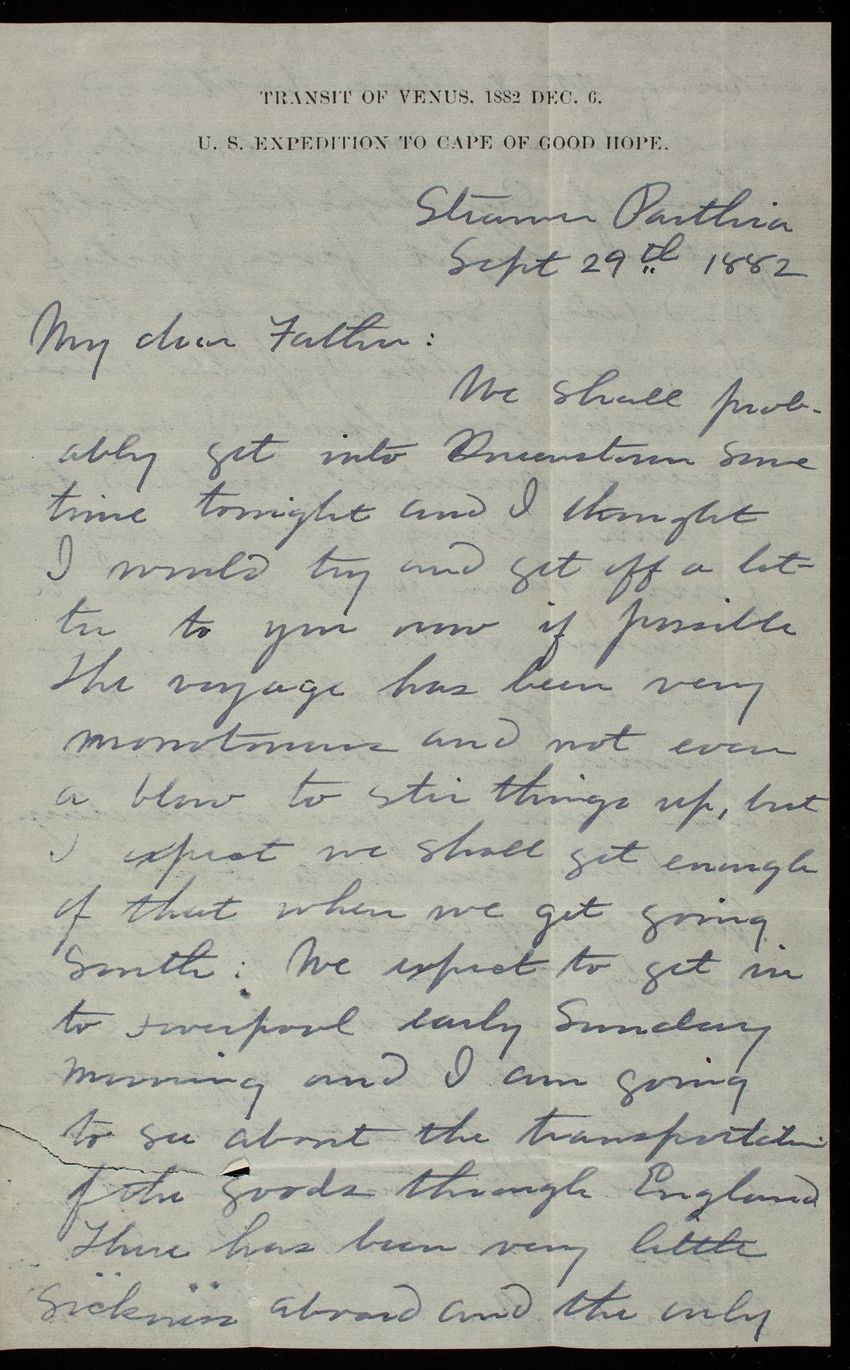 TRANSIT OF VENUS, 1882 DEC. 6.
U. S. EXPEDITION TO CAPE OF GOOD HOPE.
Steamer Parthia
Sept 29th 1882
My dear Father:
We shall prob-
ably get into Queenstown some
time tonight and I thought
I would try and get off a let-
ter to you now if possible
The voyage has been very
monotonous and not even
a blow to stir things up, but
I expect we shall get enough
of that when we get going
South: We expect to get in
to Liverpool early Sunday
morning and I am going
to see about the transportation
of the goods through England
There has been very little
sickness aboard and the only